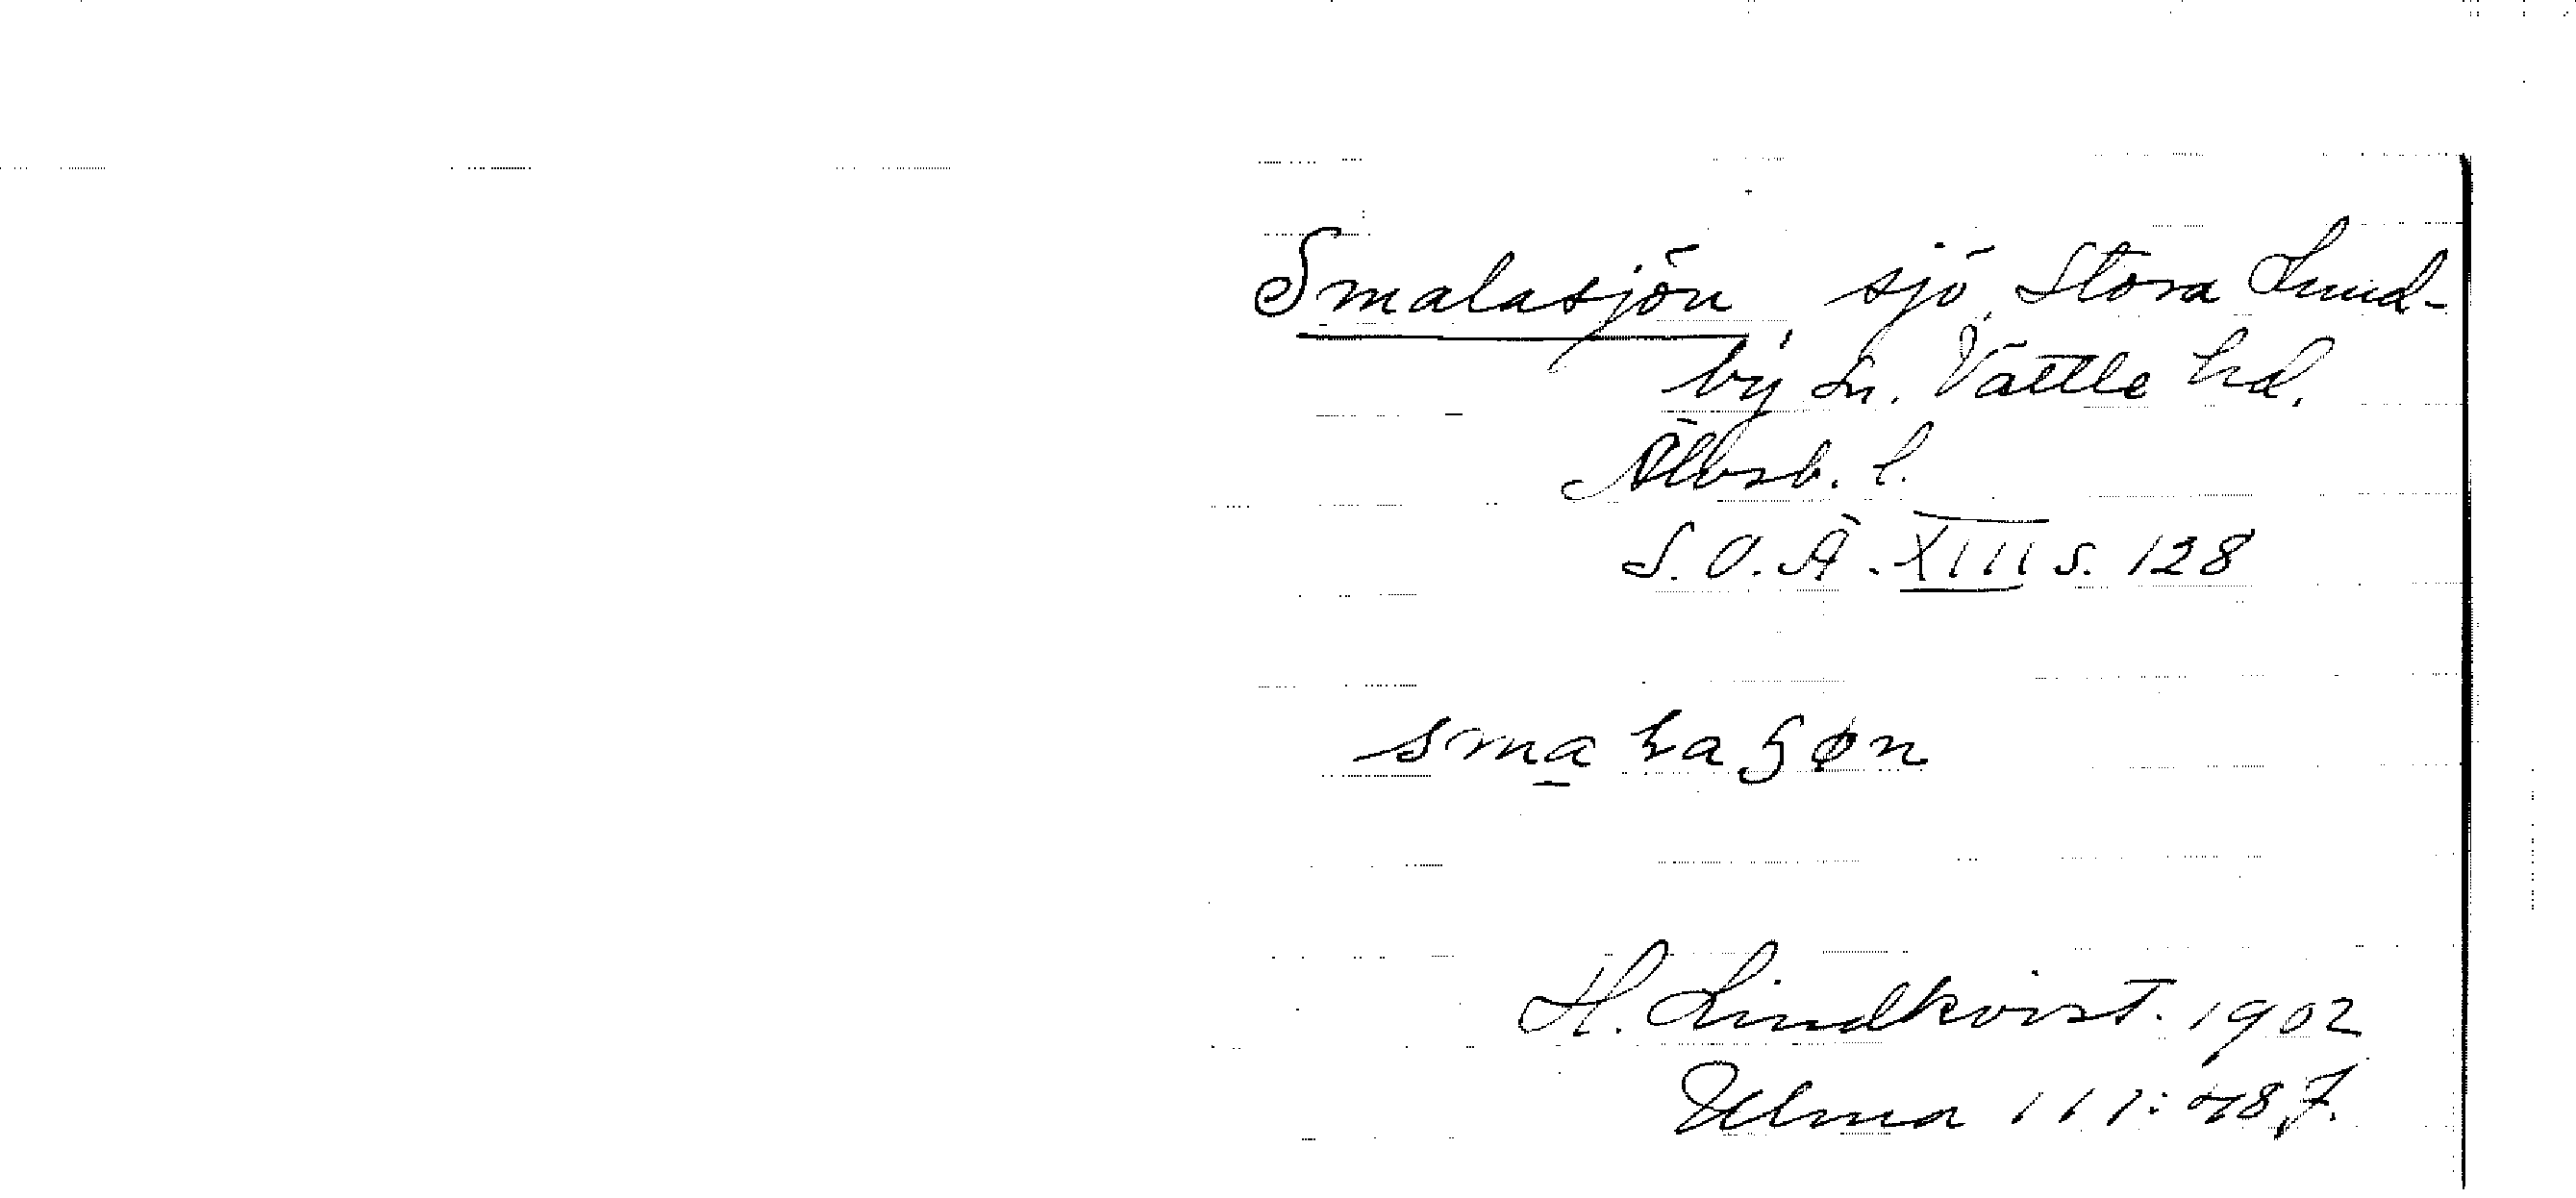 Smalasjön, sjö, Stora Lund-
by sn. Vättle hd.
Älvsb. l.
S.O.Ä. XIII s. 128
H. Lindkvist. 1902
Ulma 111:487.